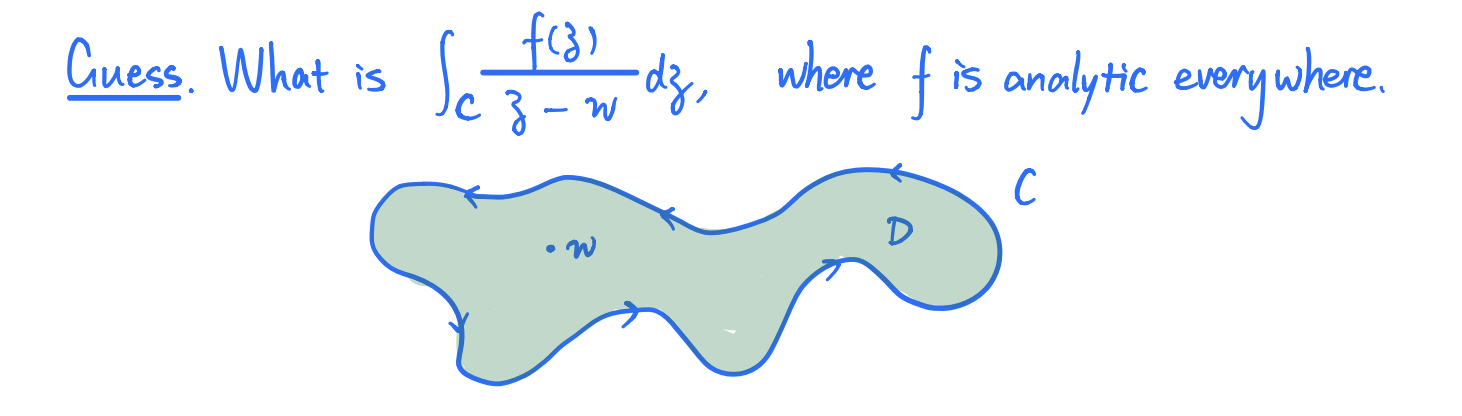 Guess. What is ∫_C f(z)/(z − w) dz, where f is analytic everywhere.
C
D
· w